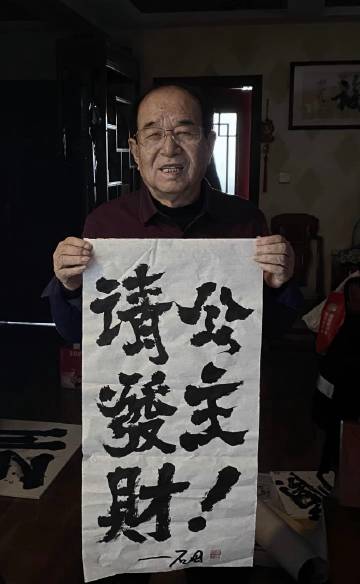 公主！
請發財